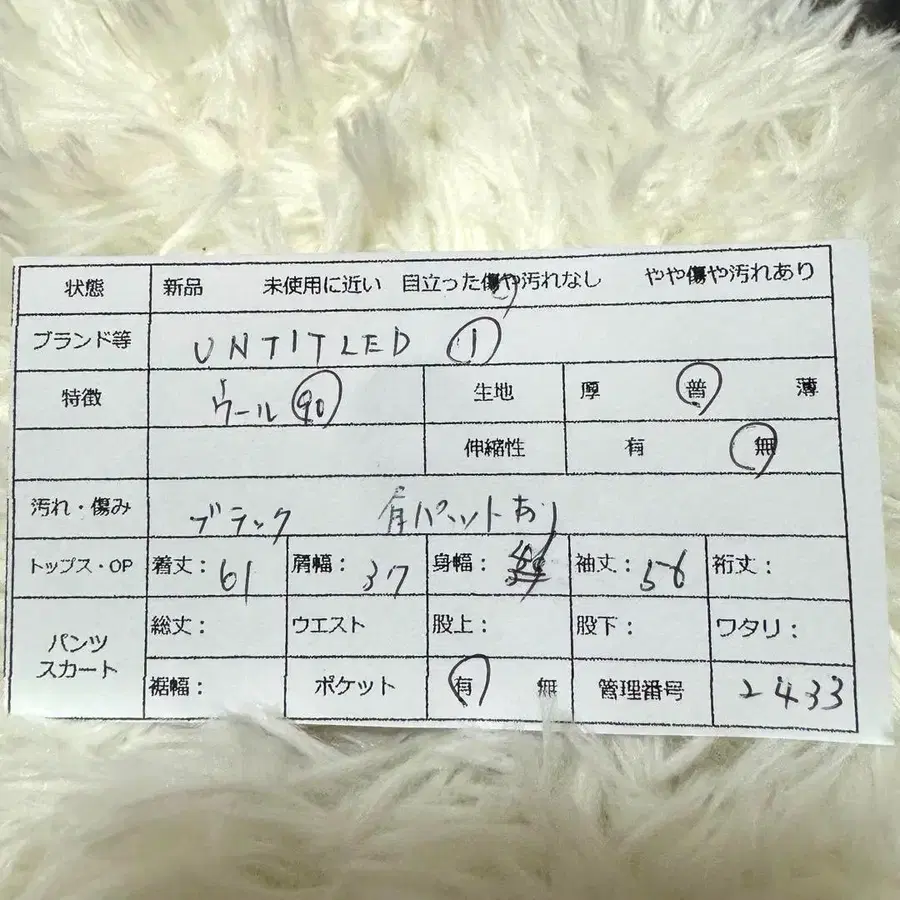 状態 新品 未使用に近い 目立った傷や汚れなし やや傷や汚れあり
ブランド等 UNTITLED ①
特徴 ウール 90 生地 厚 普 薄
伸縮性 有 無
汚れ・傷み ブラック 肩パットあり
トップス・OP 着丈: 61 肩幅: 37 身幅: 袖丈: 56 裄丈:
パンツ スカート 総丈: ウエスト 股上: 股下: ワタリ:
裾幅: ポケット 有 無 管理番号 2433